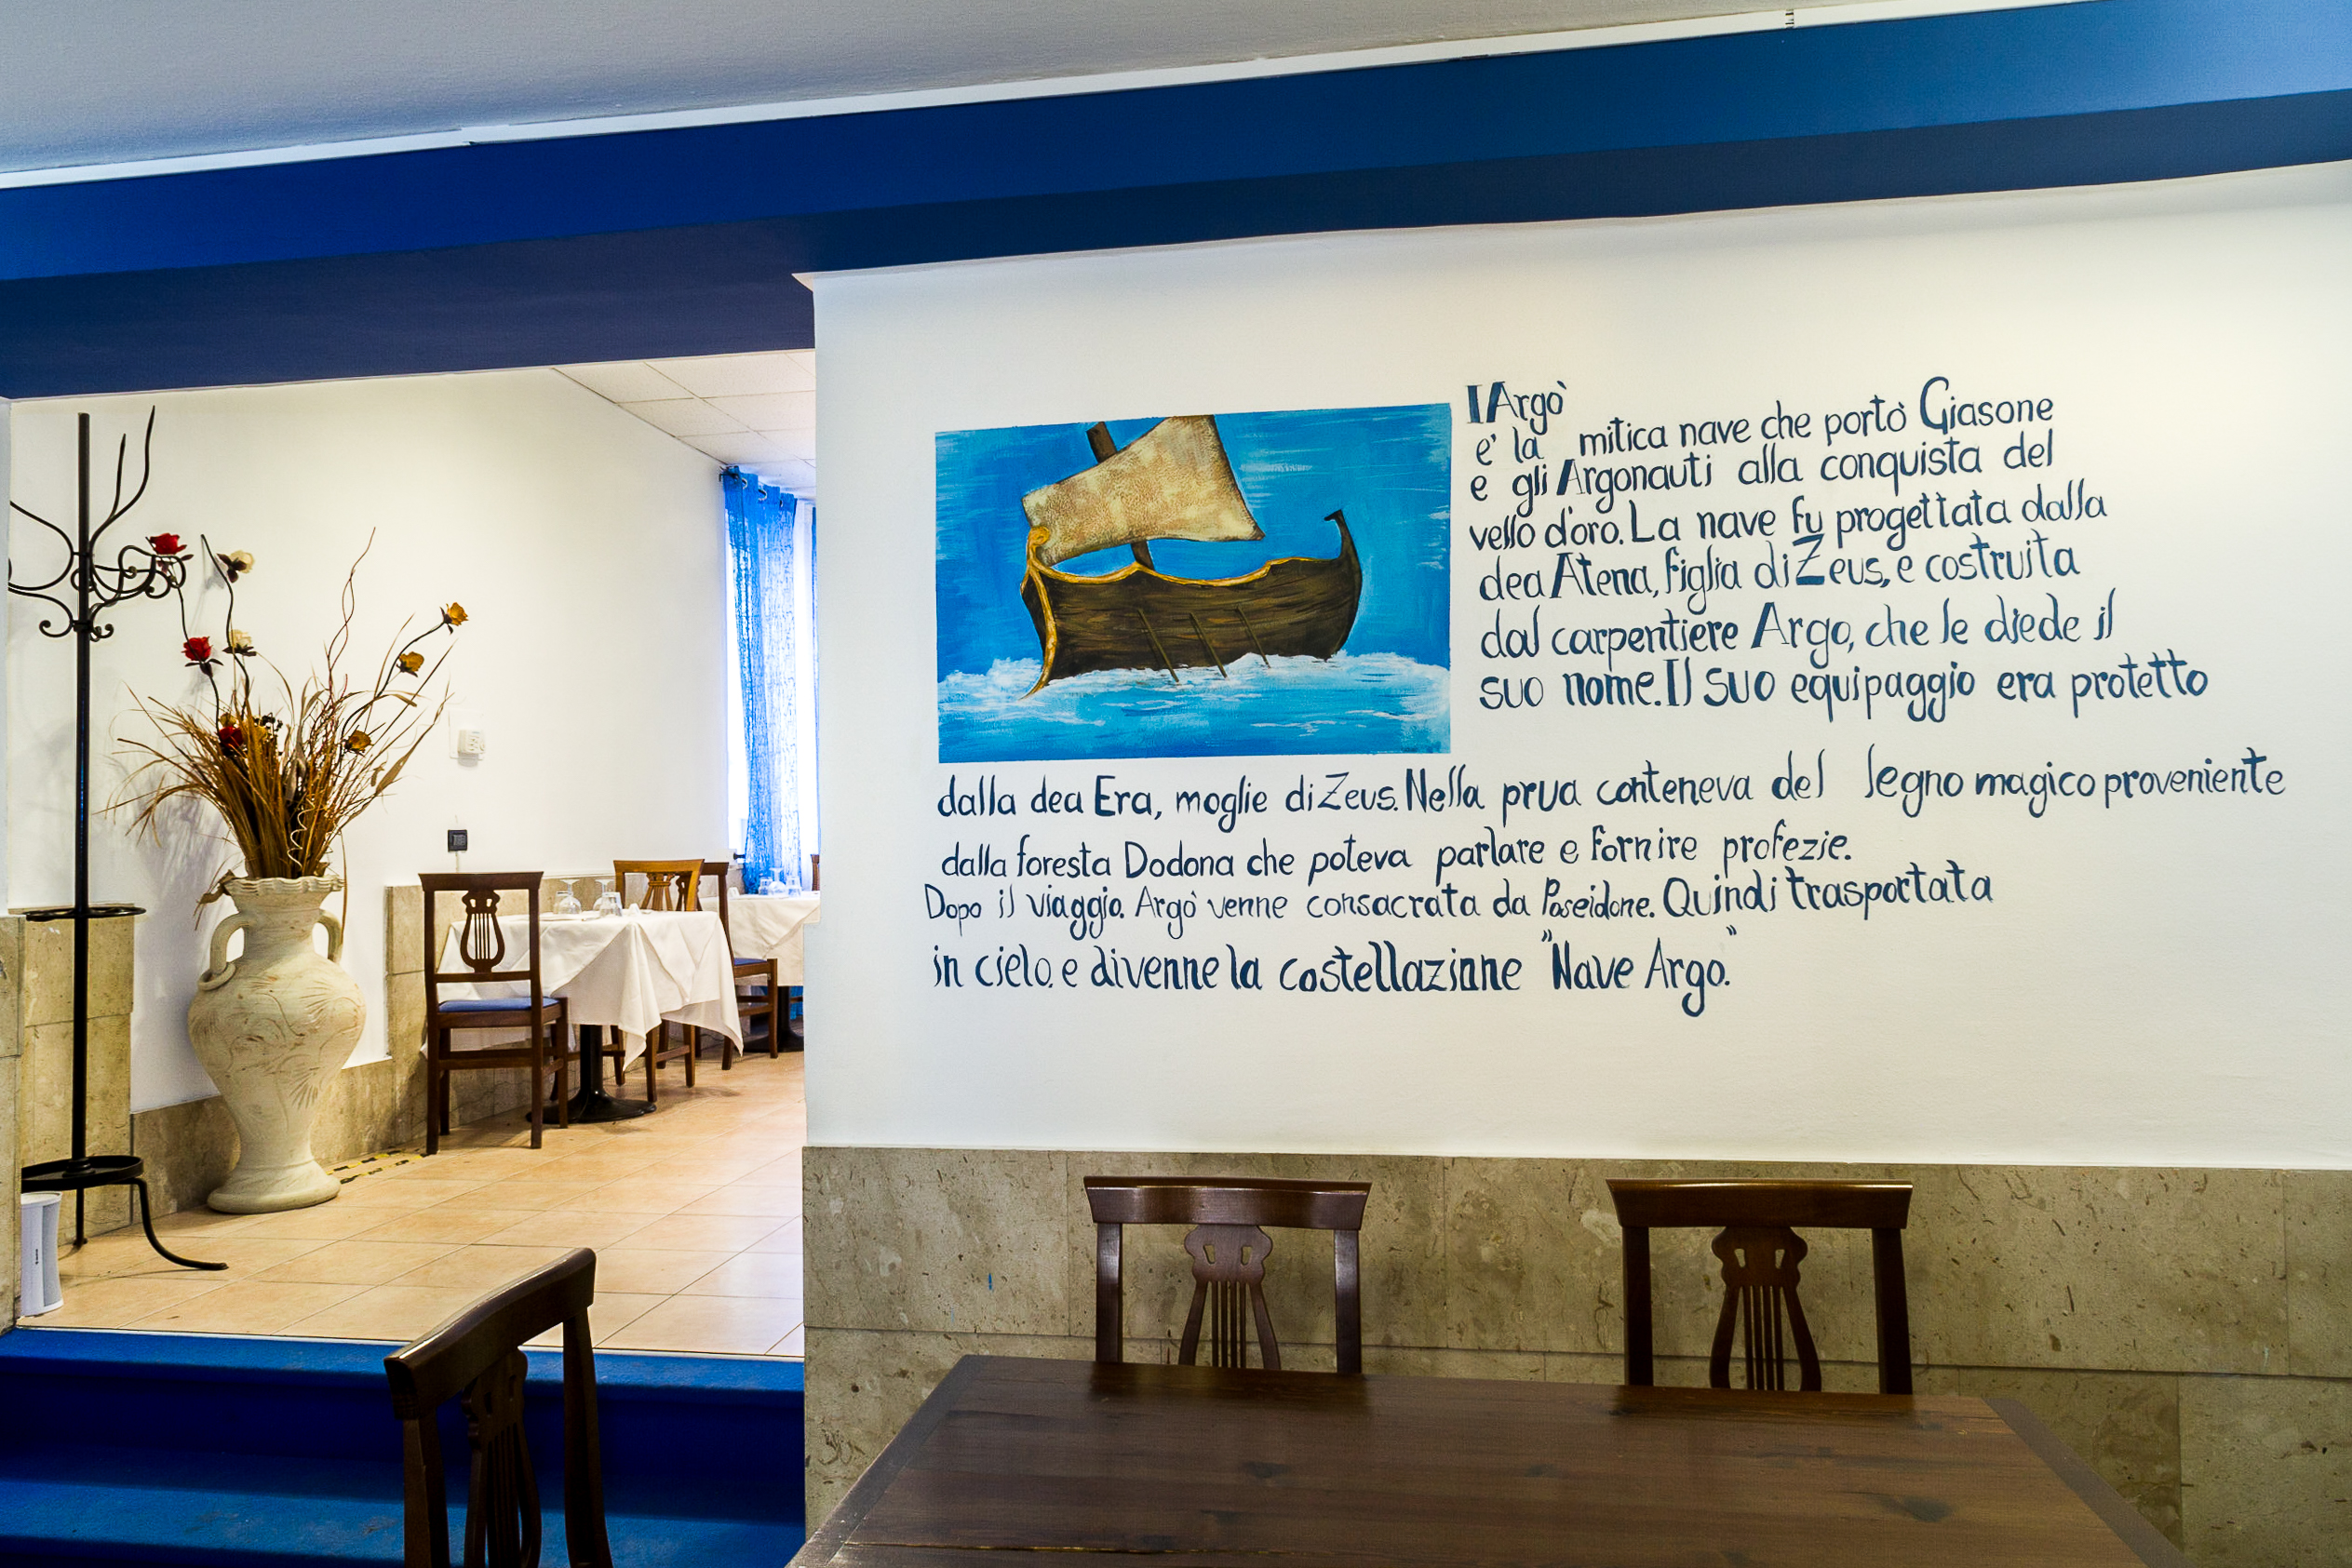 l'Argò
e' la mitica nave che portò Giasone
e gli Argonauti alla conquista del
vello d'oro. La nave fu progettata dalla
dea Atena, figlia di Zeus, e costruita
dal carpentiere Argo, che le diede il
suo nome. Il suo equipaggio era protetto
dalla dea Era, moglie di Zeus. Nella prua conteneva del legno magico proveniente
dalla foresta Dodona che poteva parlare e fornire profezie.
Dopo il viaggio. Argò venne consacrata da Poseidone. Quindi trasportata
in cielo. e divenne la costellazione "Nave Argo."